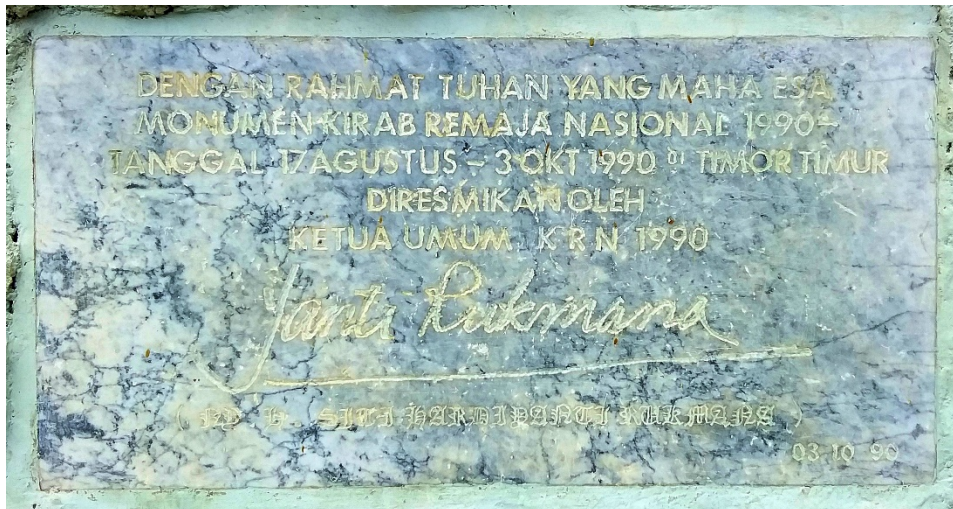 DENGAN RAHMAT TUHAN YANG MAHA ESA
MONUMEN KIRAB REMAJA NASIONAL 1990
TANGGAL 17 AGUSTUS - 3 OKT 1990 DI TIMOR TIMUR
DIRESMIKAN OLEH
KETUA UMUM K R N 1990
Janti Rukmana
( NY H SITI HARDIYANTI RUKMANA )
03 10 90